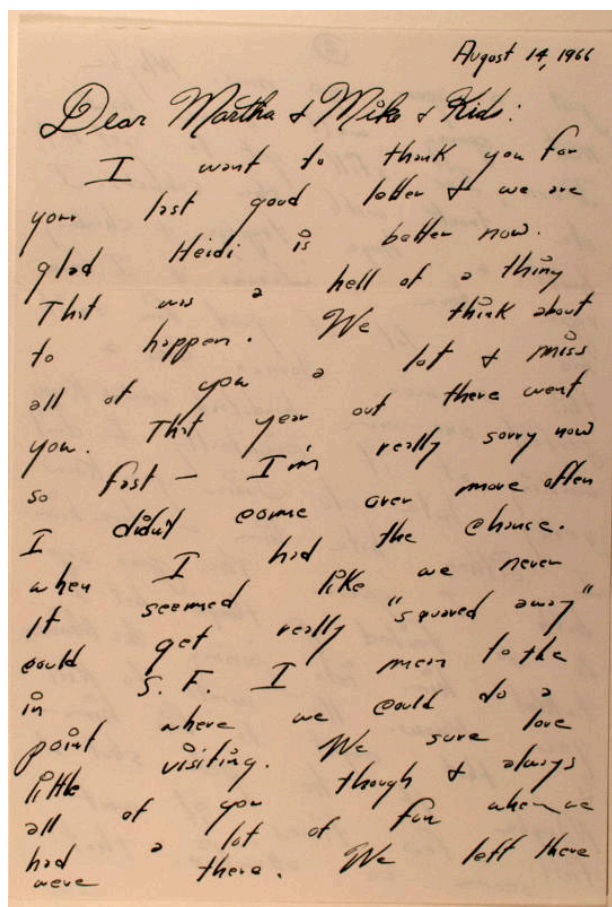 August 14, 1966
Dear Martha & Mike & Kids:
I want to thank you for
your last good letter & we are
glad Heidi is better now.
That was a hell of a thing
to happen. We think about
all of you a lot & miss
you. That year out there went
so fast — I'm really sorry now
I didn't come over more often
when I had the chance.
It seemed like we never
could get really "squared away"
in S.F. I mean to the
point where we could do a
little visiting. We sure love
all of you though & always
had a lot of fun when we
were there. We left there